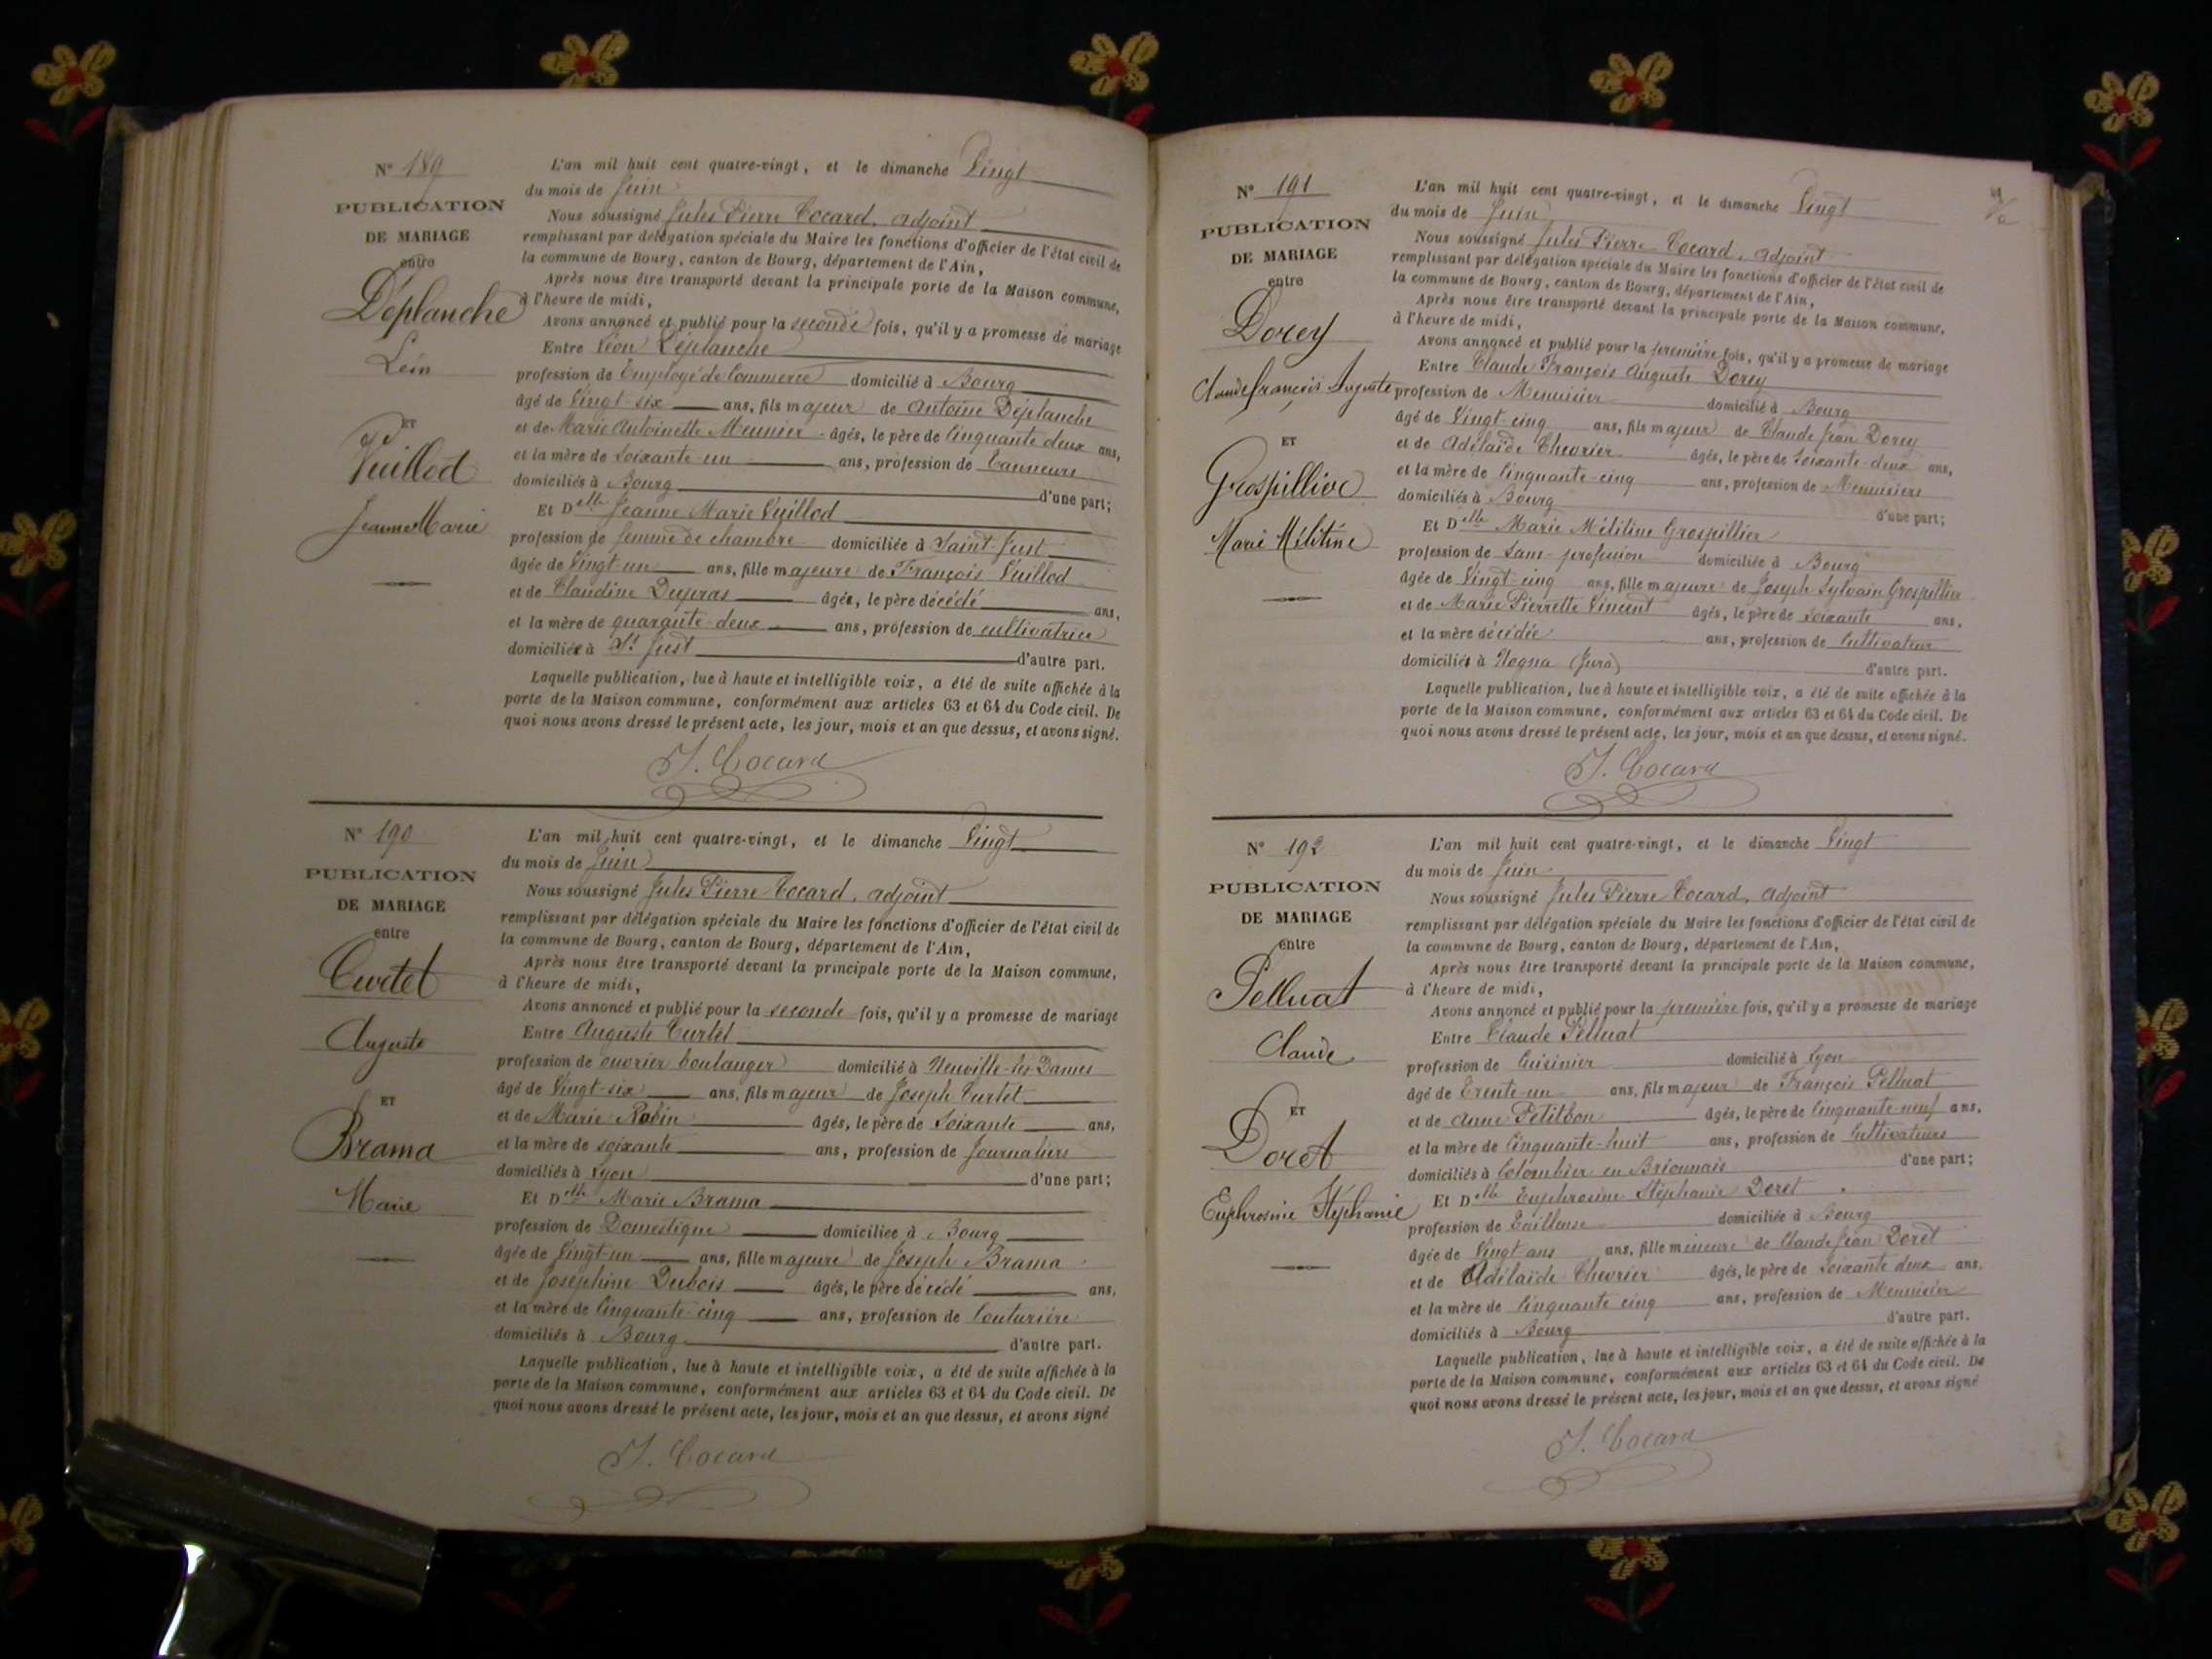 N° 189
PUBLICATION
DE MARIAGE
entre
Déplanche
Léon
ET
Vuillod
Jeanne Marie
L'an mil huit cent quatre-vingt, et le dimanche Vingt
du mois de Juin
Nous soussigné Jules Pierre Cocard, adjoint
remplissant par délégation spéciale du Maire les fonctions d'officier de l'état civil de
la commune de Bourg, canton de Bourg, département de l'Ain,
Après nous être transporté devant la principale porte de la Maison commune,
à l'heure de midi,
Avons annoncé et publié pour la seconde fois, qu'il y a promesse de mariage
Entre Léon Déplanche
profession de Employé de Commerce domicilié à Bourg
âgé de Vingt-six ans, fils majeur de Antoine Déplanche
et de Marie Antoinette Meunier âgés, le père de Cinquante deux ans,
et la mère de soixante-un ans, profession de Tanneurs
domiciliés à Bourg d'une part;
Et Delle Jeanne Marie Vuillod
profession de femme de chambre domiciliée à Saint-Just
âgée de Vingt-un ans, fille majeure de François Vuillod
et de Claudine Dupras âgés, le père décédé ans,
et la mère de quarante-deux ans, profession de cultivatrice
domiciliée à St Just d'autre part.
Laquelle publication, lue à haute et intelligible voix, a été de suite affichée à la
porte de la Maison commune, conformément aux articles 63 et 64 du Code civil. De
quoi nous avons dressé le présent acte, les jour, mois et an que dessus, et avons signé.
J. Cocard
N° 190
PUBLICATION
DE MARIAGE
entre
Curtet
Auguste
ET
Brama
Marie
L'an mil huit cent quatre-vingt, et le dimanche Vingt
du mois de Juin
Nous soussigné Jules Pierre Cocard, adjoint
remplissant par délégation spéciale du Maire les fonctions d'officier de l'état civil de
la commune de Bourg, canton de Bourg, département de l'Ain,
Après nous être transporté devant la principale porte de la Maison commune,
à l'heure de midi,
Avons annoncé et publié pour la seconde fois, qu'il y a promesse de mariage
Entre Auguste Curtet
profession de ouvrier boulanger domicilié à Neuville-les-Dames
âgé de Vingt-six ans, fils majeur de Joseph Curtet
et de Marie Robin âgés, le père de Soixante ans,
et la mère de soixante ans, profession de Journaliers
domiciliés à Lyon d'une part;
Et Delle Marie Brama
profession de Domestique domiciliée à Bourg
âgée de Vingt-un ans, fille majeure de Joseph Brama
et de Joséphine Dubois âgés, le père décédé ans,
et la mère de Cinquante-cinq ans, profession de Couturière
domiciliés à Bourg d'autre part.
Laquelle publication, lue à haute et intelligible voix, a été de suite affichée à la
porte de la Maison commune, conformément aux articles 63 et 64 du Code civil. De
quoi nous avons dressé le présent acte, les jour, mois et an que dessus, et avons signé
J. Cocard
N° 191
PUBLICATION
DE MARIAGE
entre
Dorey
Claude François Auguste
ET
Grospillier
Marie Mélitine
L'an mil huit cent quatre-vingt, et le dimanche Vingt
du mois de Juin
Nous soussigné Jules Pierre Cocard, adjoint
remplissant par délégation spéciale du Maire les fonctions d'officier de l'état civil de
la commune de Bourg, canton de Bourg, département de l'Ain,
Après nous être transporté devant la principale porte de la Maison commune,
à l'heure de midi,
Avons annoncé et publié pour la première fois, qu'il y a promesse de mariage
Entre Claude François Auguste Dorey
profession de Menuisier domicilié à Bourg
âgé de Vingt-cinq ans, fils majeur de Claude Jean Dorey
et de Adélaïde Chevrier âgés, le père de Soixante-deux ans,
et la mère de Cinquante-cinq ans, profession de Menuisiers
domiciliés à Bourg d'une part;
Et Delle Marie Mélitine Grospillier
profession de Sans profession domiciliée à Bourg
âgée de Vingt-cinq ans, fille majeure de Joseph Sylvain Grospillier
et de Marie Pierrette Vincent âgés, le père de soixante ans,
et la mère décédée ans, profession de Cultivateur
domicilié à Nogna (Jura) d'autre part.
Laquelle publication, lue à haute et intelligible voix, a été de suite affichée à la
porte de la Maison commune, conformément aux articles 63 et 64 du Code civil. De
quoi nous avons dressé le présent acte, les jour, mois et an que dessus, et avons signé.
J. Cocard
N° 192
PUBLICATION
DE MARIAGE
entre
Pelluat
Claude
ET
Doret
Euphrosine Stéphanie
L'an mil huit cent quatre-vingt, et le dimanche Vingt
du mois de Juin
Nous soussigné Jules Pierre Cocard, adjoint
remplissant par délégation spéciale du Maire les fonctions d'officier de l'état civil de
la commune de Bourg, canton de Bourg, département de l'Ain,
Après nous être transporté devant la principale porte de la Maison commune,
à l'heure de midi,
Avons annoncé et publié pour la première fois, qu'il y a promesse de mariage
Entre Claude Pelluat
profession de Cuisinier domicilié à Lyon
âgé de Trente-un ans, fils majeur de François Pelluat
et de Anne Petitbon âgés, le père de Cinquante-neuf ans,
et la mère de Cinquante-huit ans, profession de Cultivateurs
domiciliés à Colombier en Brionnais d'une part;
Et Delle Euphrosine Stéphanie Doret
profession de Tailleuse domiciliée à Bourg
âgée de Vingt ans ans, fille mineure de Claude Jean Doret
et de Adélaïde Chevrier âgés, le père de Soixante deux ans,
et la mère de Cinquante cinq ans, profession de Menuisier
domiciliés à Bourg d'autre part.
Laquelle publication, lue à haute et intelligible voix, a été de suite affichée à la
porte de la Maison commune, conformément aux articles 63 et 64 du Code civil. De
quoi nous avons dressé le présent acte, les jour, mois et an que dessus, et avons signé
J. Cocard